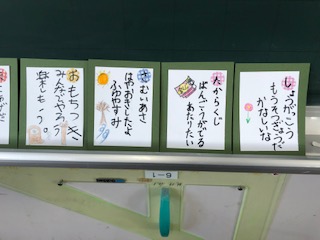 しょうがっこう
もうそつぎょうだ
かなしいな
たからくじ
ばんごうがでる
あたりたい
さむいあさ
はやおきしたよ
ふゆやすみ
おもちつき
みんなでやろう
楽しもう。
6-1